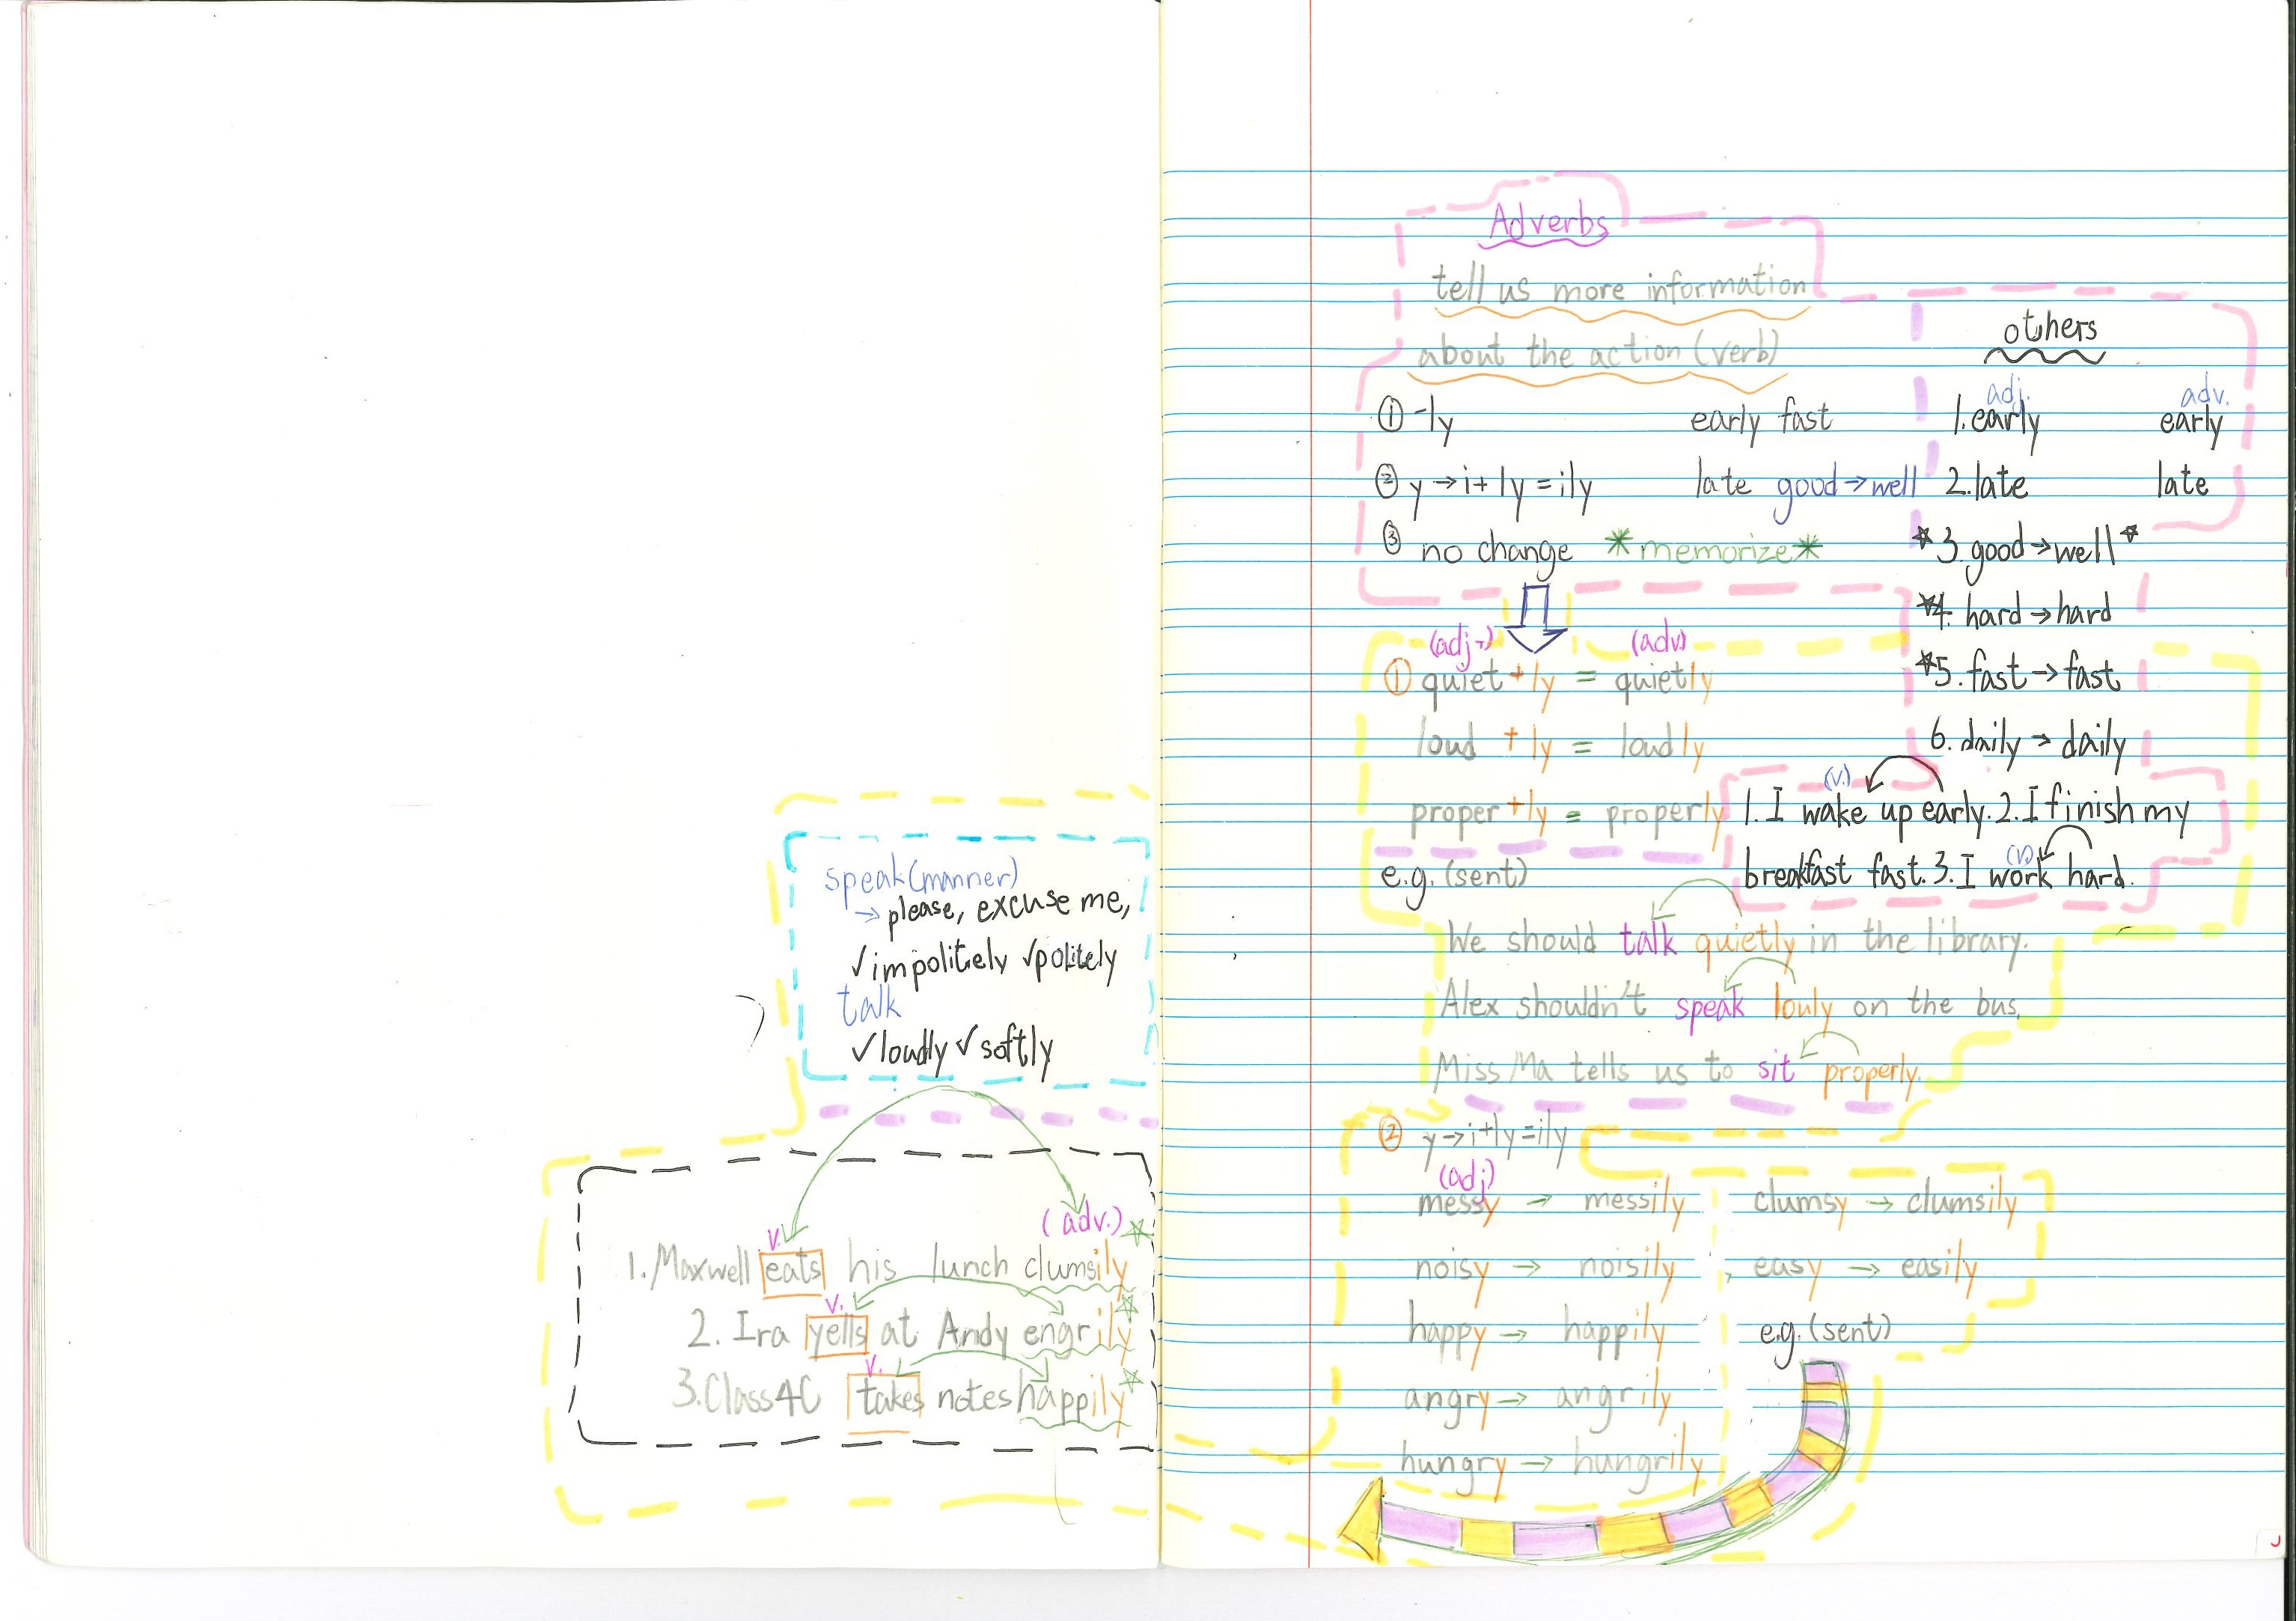 speak(manner)
→ please, excuse me,
✓impolitely ✓politely
talk
✓loudly ✓softly
(adv.)
v.
1. Maxwell eats his lunch clumsily
v.
2. Ira yells at Andy engrily
v.
3. Class 4C takes notes happily
Adverbs
tell us more information
about the action (verb)
① -ly early fast
② y→i+ly=ily late good→well
③ no change *memorize*
others
adj. adv.
1. early early
2. late late
*3. good→well*
*4. hard→hard
*5. fast→fast
6. daily→daily
(adj.) (adv)
① quiet+ly = quietly
loud +ly = loudly
proper+ly = properly
(v.)
1. I wake up early. 2. I finish my
(v.)
breakfast fast. 3. I work hard.
e.g. (sent)
We should talk quietly in the library.
Alex shouldn't speak louly on the bus.
Miss Ma tells us to sit properly.
② y→i+ly=ily
(adj)
messy → messily clumsy → clumsily
noisy → noisily easy → easily
happy → happily e.g. (sent)
angry → angrily
hungry → hungrily